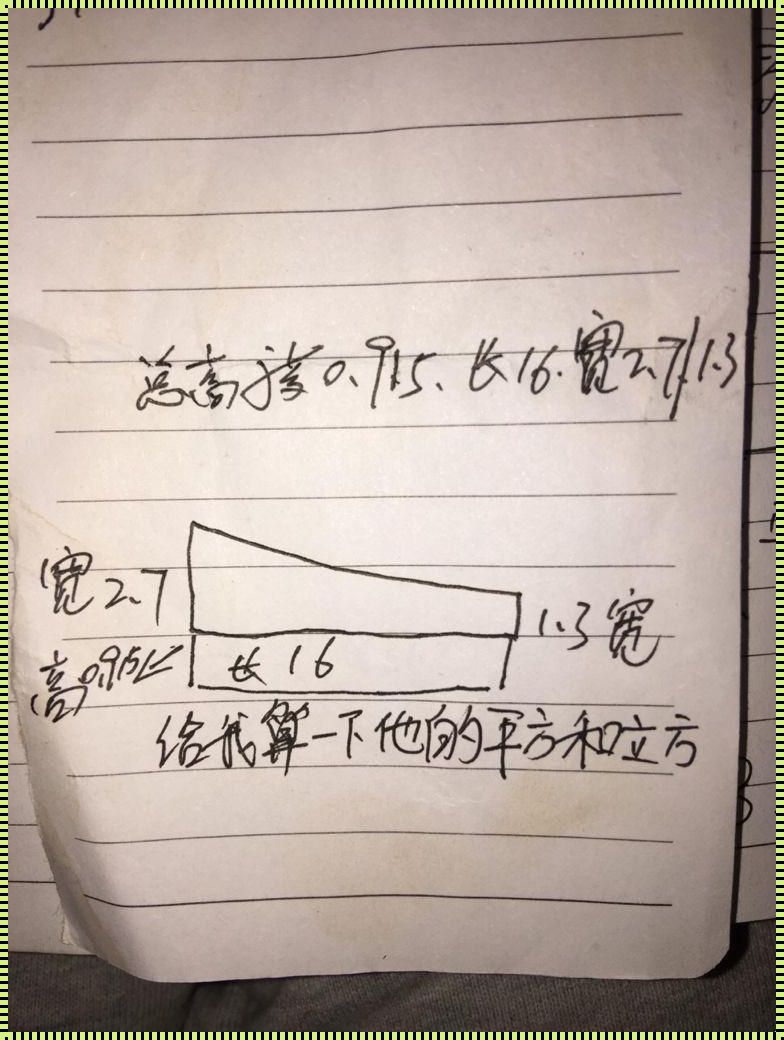 总高接0.915、长16.宽2.7/1.3
宽2.7
1.3宽
高0.915
长16
给我算一下他的平方和立方